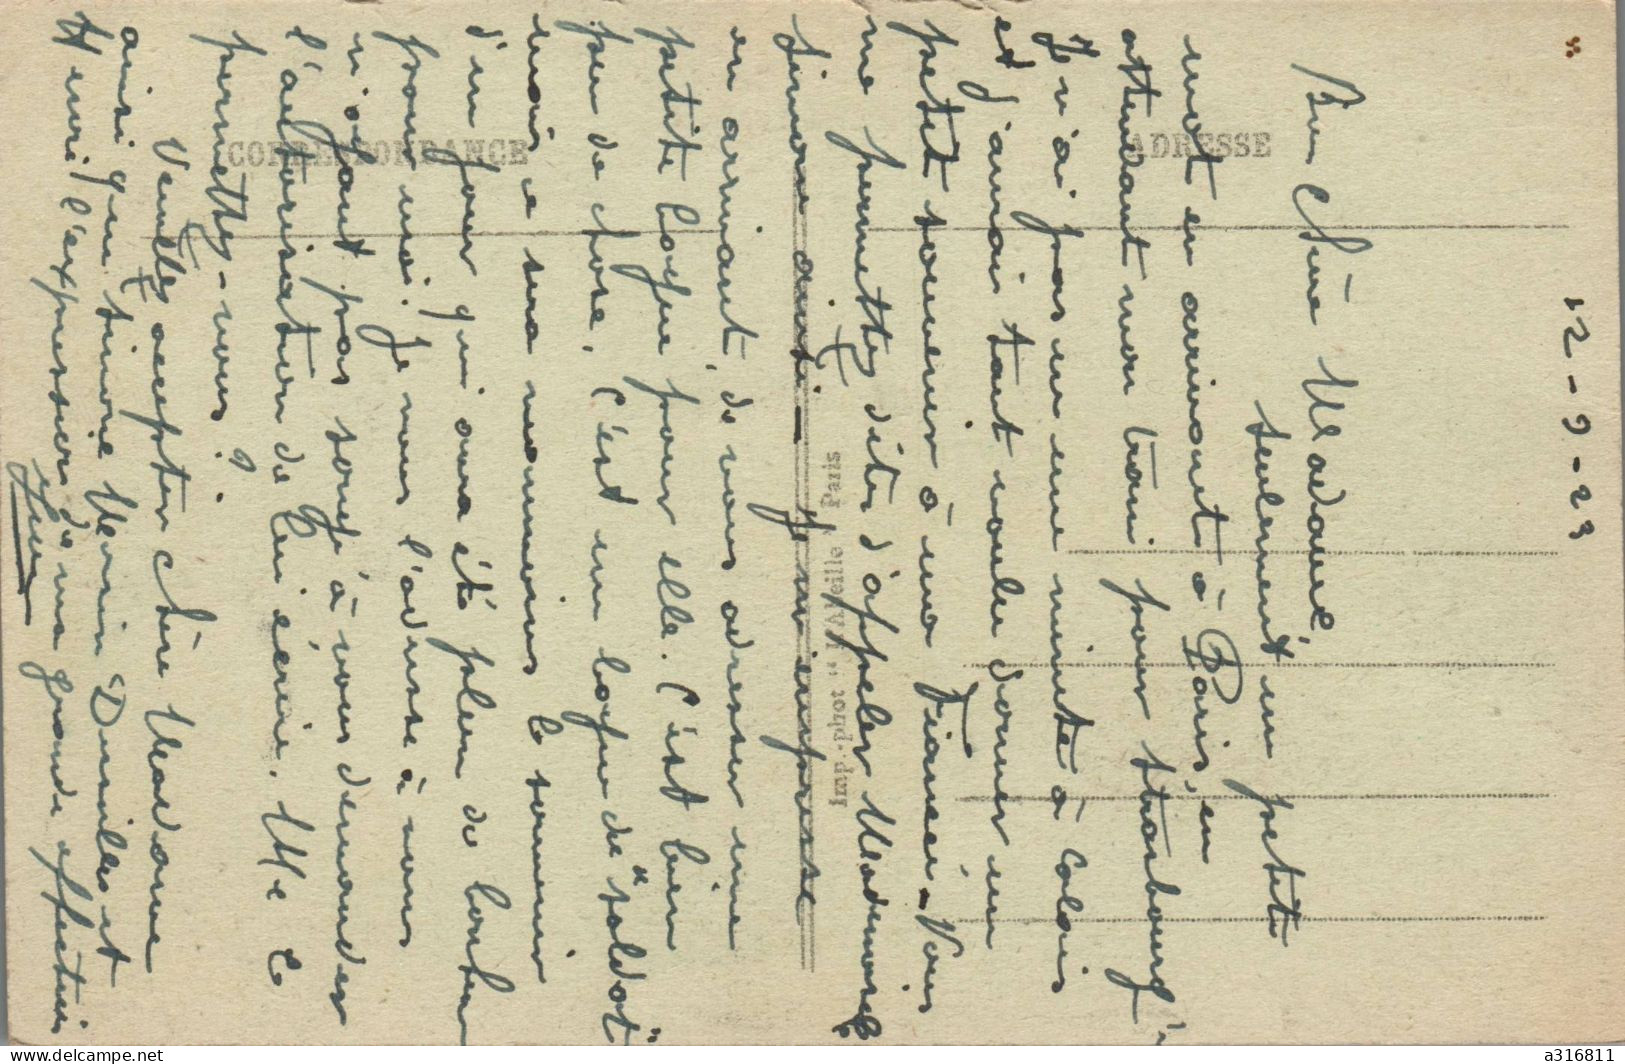 12-9-23
Bien Chère Madame,
Seulement un petit
mot en arrivant à Paris, en
attendant mon train pour Strasbourg.
Je n'ai pas eu une minute à Calais
et j'aurais tant voulu donner un
petit souvenir à ma Fiancée. Vous
me permettez dites d'appeler Mademoiselle
Simone ainsi - Je m'empresse
en arrivant, de vous adresser une
petite bague pour elle. C'est bien
peu de chose, c'est une bague de "soldat"
mais ce sera néanmoins le souvenir
d'un jour qui aura été plein de bonheur
pour moi. Je vous l'adresse à vous
n'ayant pas songé à vous demander
l'autorisation de lui écrire. Me le
permettez-vous ?
Veuillez accepter chère Madame
ainsi que Simone Merin Dumiles et
Henri l'expression de ma grande affection
CORRESPONDANCE
ADRESSE
Imp.-phot
Paris
a316811